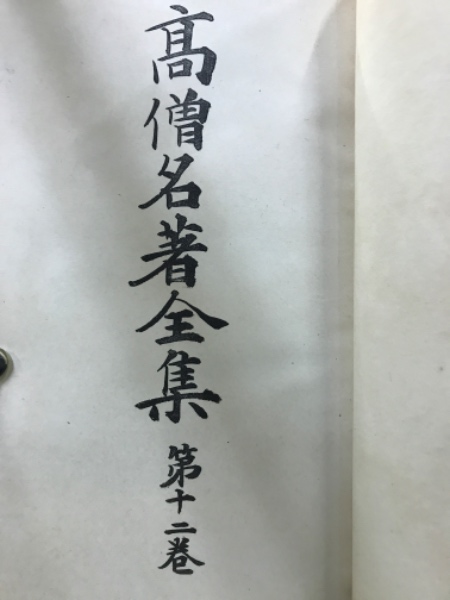 髙僧名著全集
第十二卷